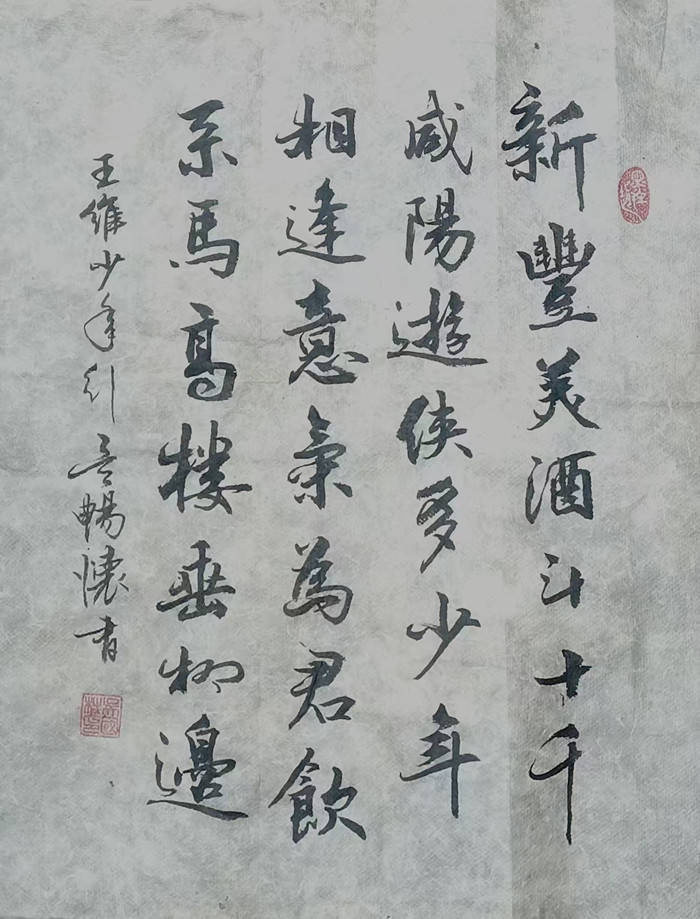 新豐美酒斗十千
咸陽遊俠多少年
相逢意氣為君飲
系馬高樓垂柳邊
王維少年行 吴暢懷書